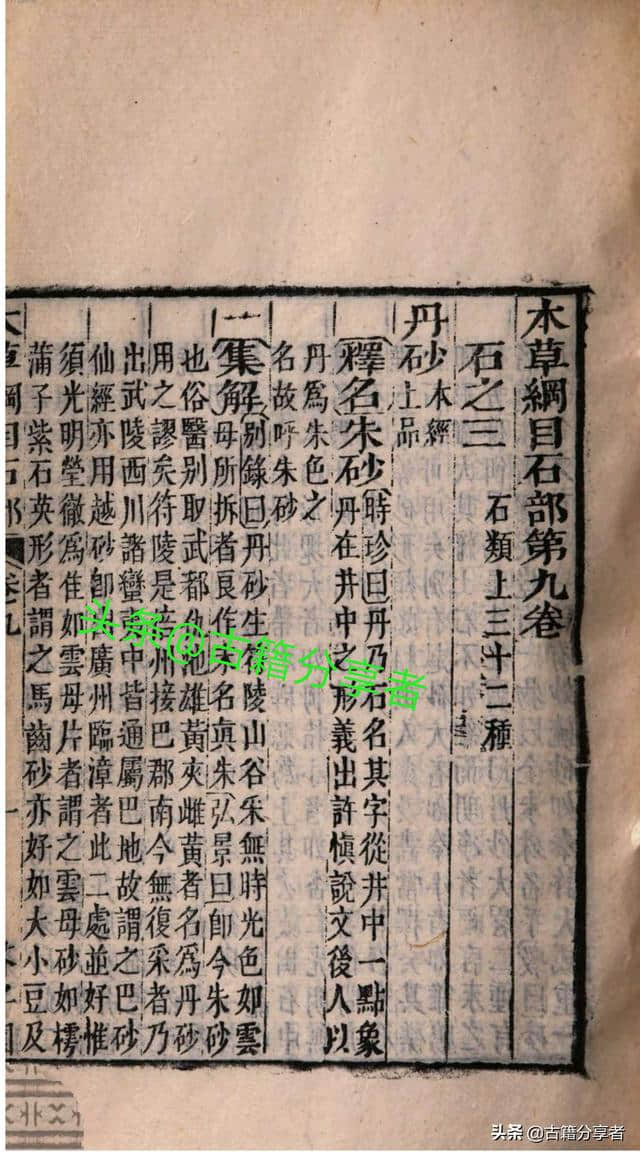 本草綱目石部第九卷
石之三 石類上三十二種
丹砂 本經
上品
釋名朱砂 時珍曰丹乃石名其字從井中一點象
丹在井中之形義出許慎說文後人以
丹爲朱色之
名故呼朱砂
集解 別錄曰丹砂生符陵山谷采無時光色如雲
母所拆者良作末名眞朱弘景曰卽今朱砂
也俗醫別取武都仇池雄黃夾雌黃者名爲丹砂
用之謬矣符陵是涪州接巴郡南今無復采者乃
出武陵西川諸蠻夷中皆通屬巴地故謂之巴砂
仙經亦用越砂卽廣州臨漳者此二處並好惟
須光明瑩徹爲佳如雲母片者謂之雲母砂如樗
蒲子紫石英形者謂之馬齒砂亦好如大小豆及
本草綱目石部 卷九 一
头条@古籍分享者
头条 @古籍分享者